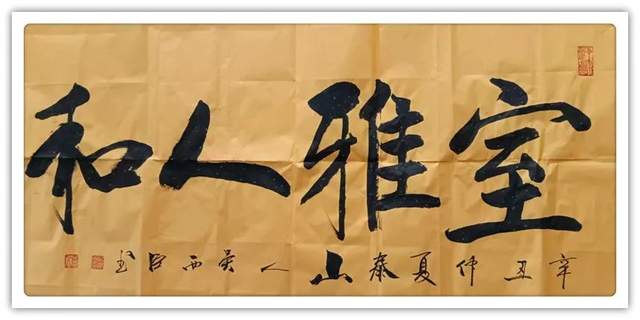 室雅人和
辛丑仲夏泰山人吴西书